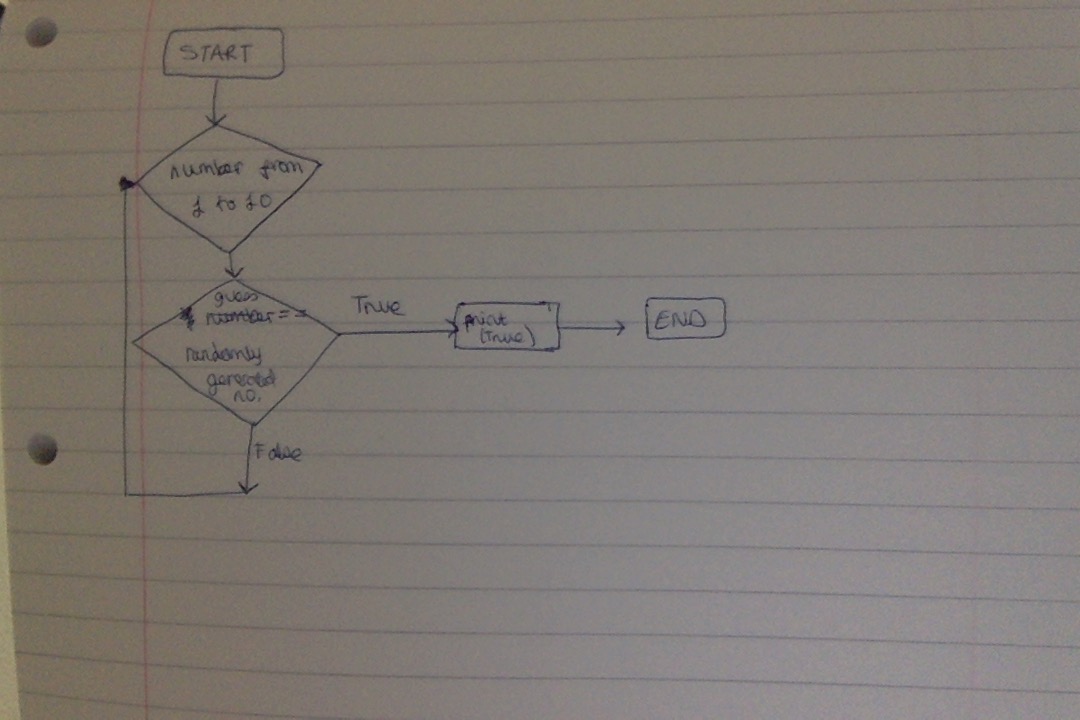 START
number from
1 to 10
guess
number ==
randomly
generated
no.
True
print
(True)
END
False